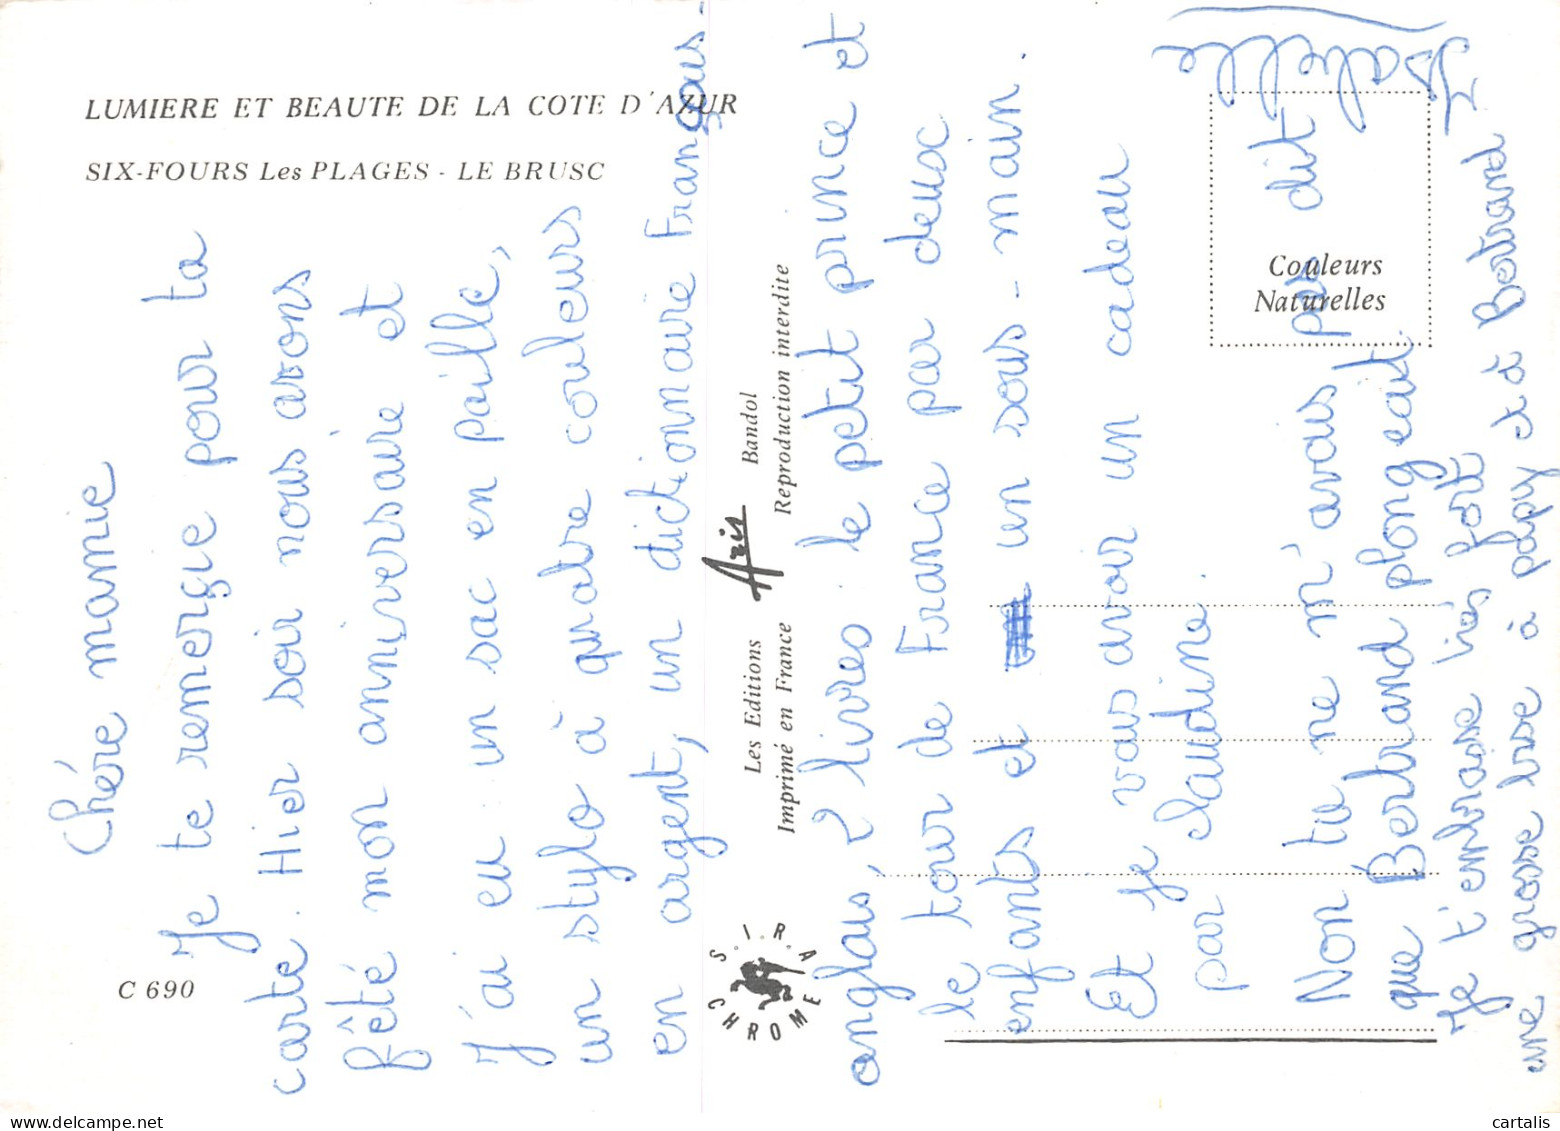 LUMIERE ET BEAUTE DE LA COTE D'AZUR
SIX-FOURS Les PLAGES - LE BRUSC
C 690
Les Editions Aris Bandol
Imprimé en France Reproduction interdite
S.I.R.A
CHROME
Couleurs
Naturelles
Chére mamie
Je te remerçie pour ta
carte. Hier soir nous avons
fêté mon anniversaire et
J'ai eu un sac en paille,
un stylo à quatre couleurs
en argent, un dictionnaire Français-
anglais, 2 livres le petit prince et
le tour de France par deux
enfants et un sous-main.
Et je vais avoir un cadeau
par Claudine.
Non tu ne m'avais pas dit
que Bertrand plongeait.
Je t'embrasse très fort
une grosse bise à papy et à Bertrand
Isabelle
www.delcampe.net
cartalis